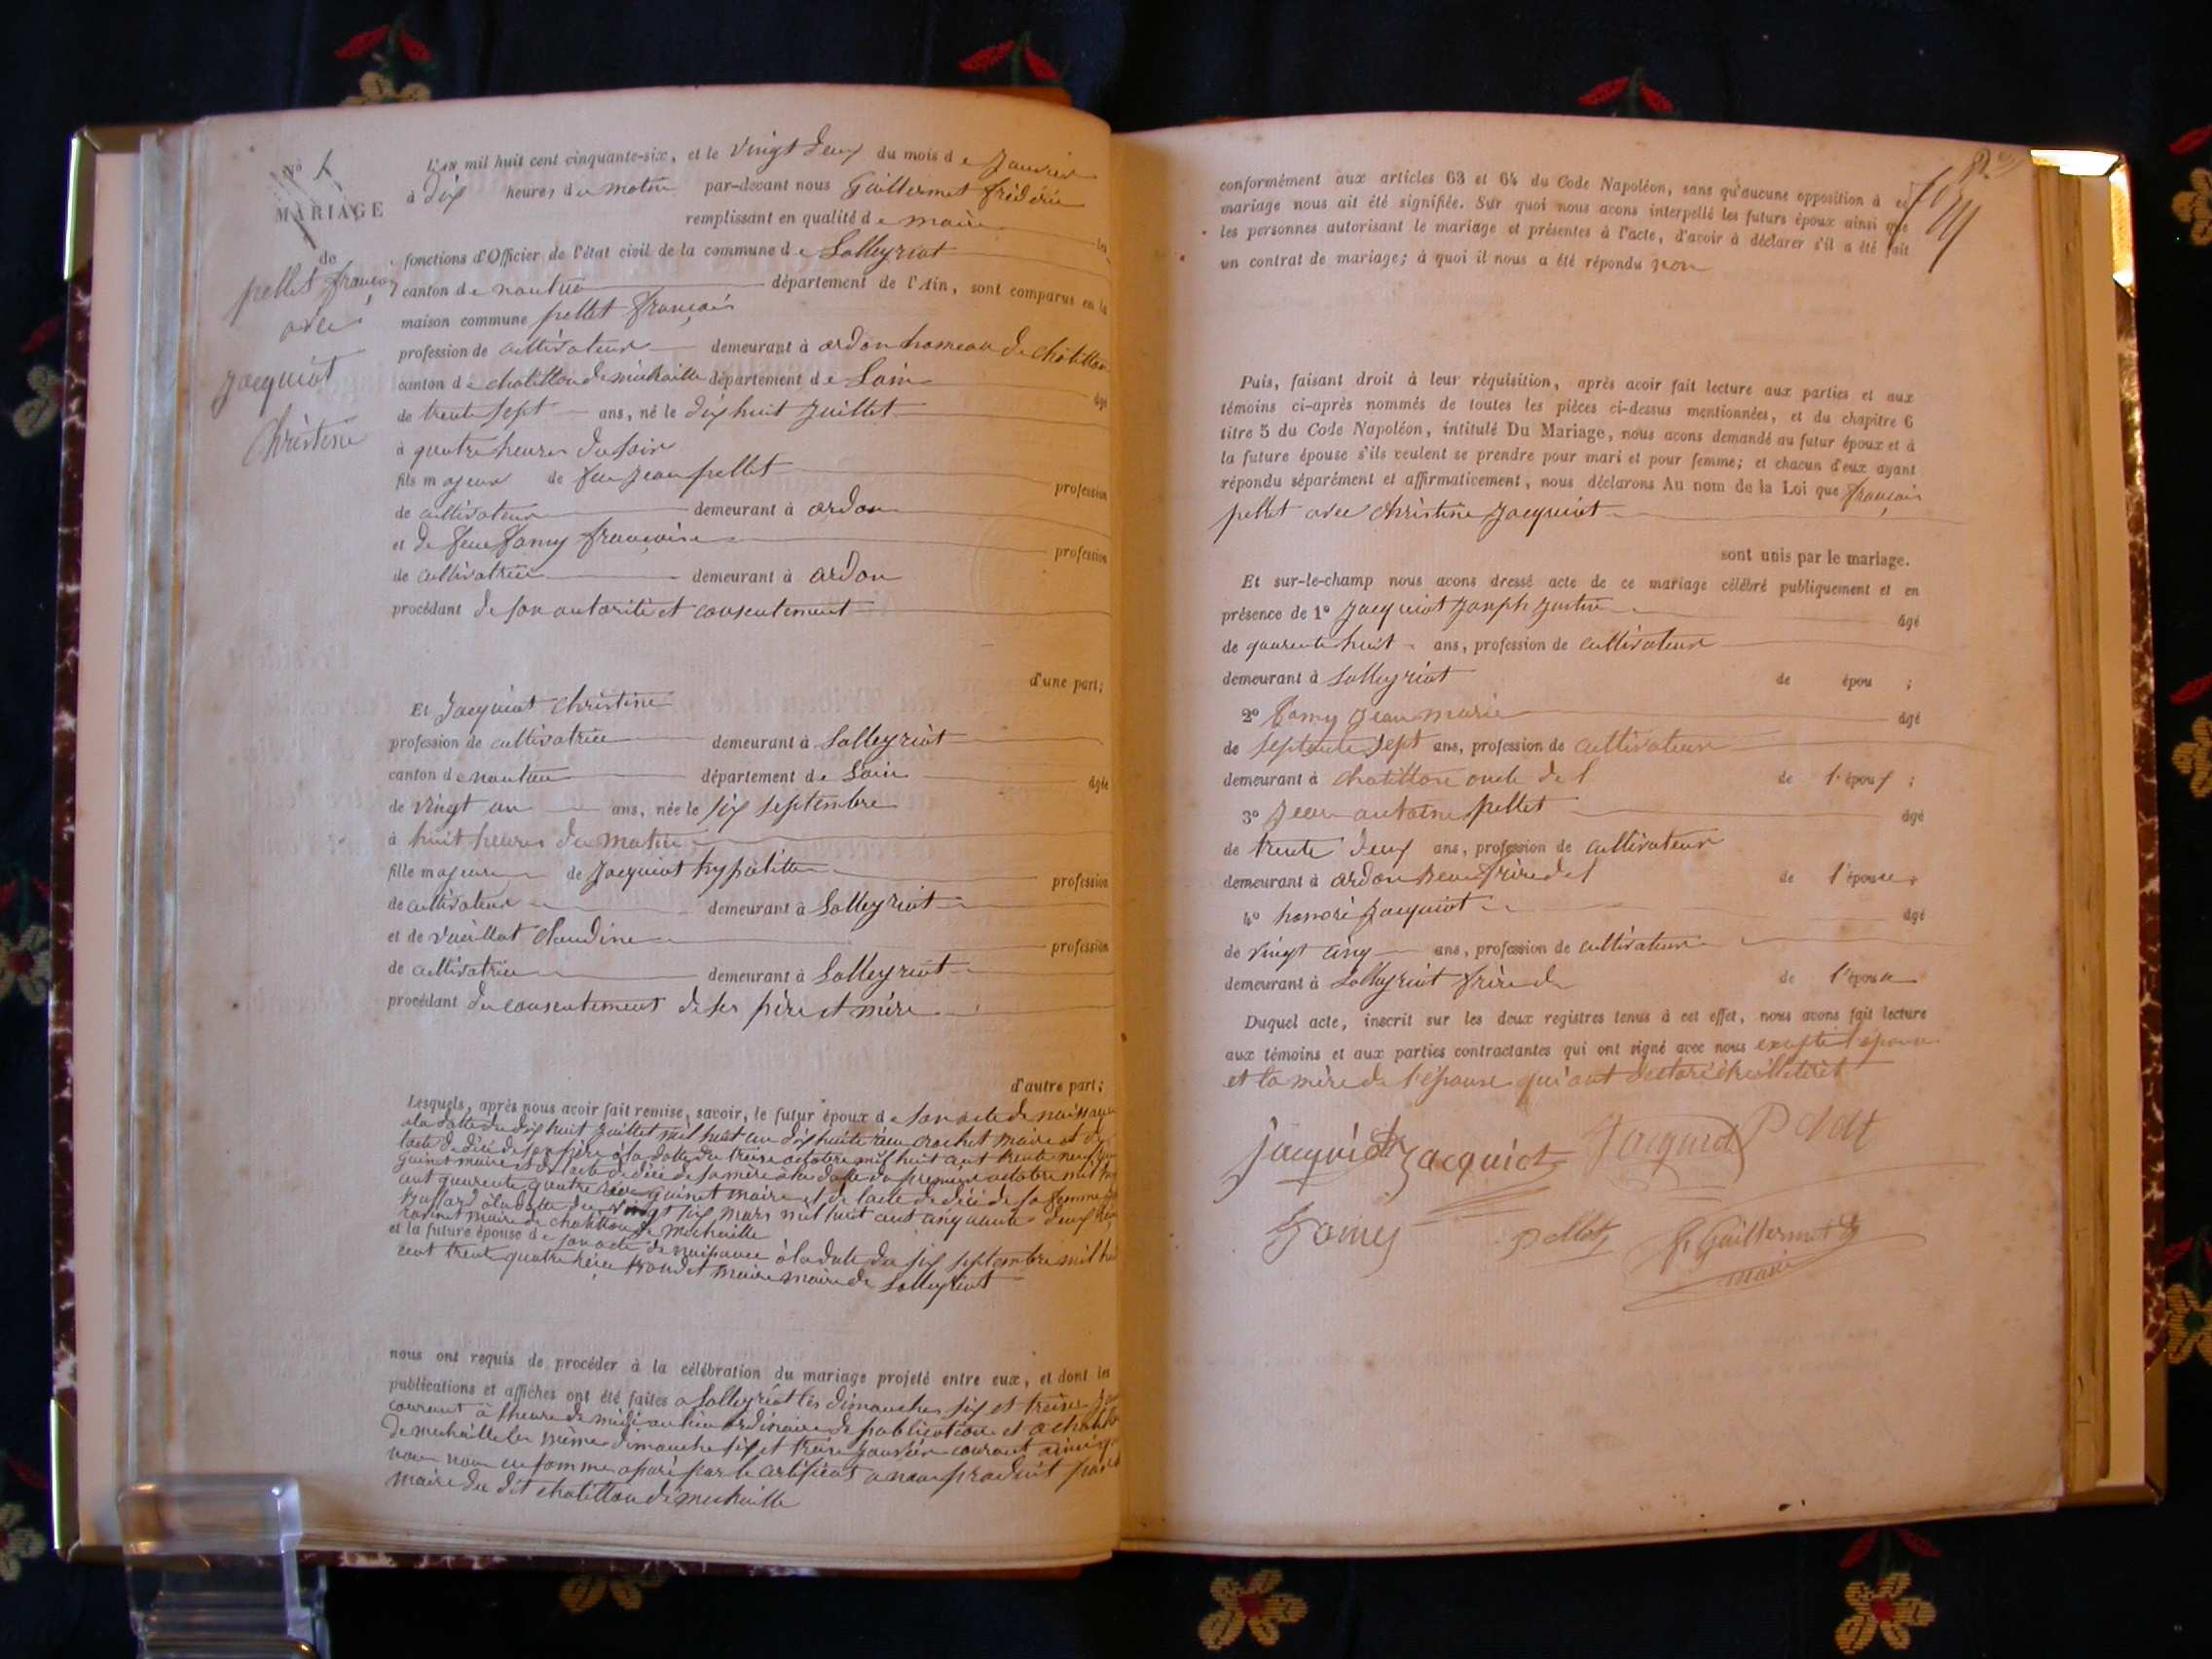 No 1
MARIAGE
de
pellet françois
avec
jacquiot
Christine
L'AN mil huit cent cinquante-six, et le vingt deux du mois de Janvier
à dix heures du matin par-devant nous Guillermet frédéric
remplissant en qualité de maire les
fonctions d'Officier de l'état civil de la commune de Lalleyriat
canton de nantua département de l'Ain, sont comparus en la
maison commune pellet françois
profession de cultivateur demeurant à ardon hameau de châtillon
canton de chatillon de michaille département de Lain âgé
de trente sept ans, né le dix huit juillet
à quatre heures du soir
fils majeur de feu jean pellet profession
de cultivateur demeurant à ardon
et de feue famy françoise profession
de cultivatrice demeurant à ardon
procédant de son autorité et consentement
d'une part;
Et Jacquiot Christine
profession de cultivatrice demeurant à Lalleyriat
canton de nantua département de Lain âgée
de vingt un ans, née le six septembre
à huit heures du matin
fille majeure de Jacquiot hypolitte profession
de cultivateur demeurant à Lalleyriat
et de vuaillat claudine profession
de cultivatrice demeurant à Lalleyriat
procédant du consentement de ses père et mère
d'autre part;
Lesquels, après nous avoir fait remise, savoir, le futur époux de son acte de naissance
à la datte du dix huit juillet mil huit cen dix huit crochet maire et de
lacte de décé de son père à la datte du treize octobre mil huit cent trente neuf
guinet maire et de lacte de décé de sa mère à la datte du premier octobre mil huit
cent quarente quatre guinet maire et de lacte de décé de sa femme
à la datte du vingt six mars mil huit cent cinquante deux
maire de chatillon de michaille
et la future épouse de son acte de naissance à la date du six septembre mil huit
cent trente quatre maire maire de Lalleyriat
nous ont requis de procéder à la célébration du mariage projeté entre eux, et dont les
publications et affiches ont été faites a Lalleyriat les dimanches six et treize
courant à lheure de midi au lieu ordinaire de publication et a
de michaille les mêmes dimanche six et treize janvier courant
par le certificat a nous produit par le
maire du dit chatillon de michaille
conformément aux articles 63 et 64 du Code Napoléon, sans qu'aucune opposition à ce
mariage nous ait été signifiée. Sur quoi nous avons interpellé les futurs époux ainsi que
les personnes autorisant le mariage et présentes à l'acte, d'avoir à déclarer s'il a été fait
un contrat de mariage; à quoi il nous a été répondu non
Puis, faisant droit à leur réquisition, après avoir fait lecture aux parties et aux
témoins ci-après nommés de toutes les pièces ci-dessus mentionnées, et du chapitre 6
titre 5 du Code Napoléon, intitulé Du Mariage, nous avons demandé au futur époux et à
la future épouse s'ils veulent se prendre pour mari et pour femme; et chacun d'eux ayant
répondu séparément et affirmativement, nous déclarons Au nom de la Loi que françois
pellet avec christine jacquiot
sont unis par le mariage.
Et sur-le-champ nous avons dressé acte de ce mariage célébré publiquement et en
présence de 1º jacquiot joseph justin âgé
de quarente huit ans, profession de cultivateur
demeurant à Lalleyriat de épou ;
2º famy jean marie âgé
de septente sept ans, profession de cultivateur
demeurant à chatillon oncle del de l'époux ;
3º jean antoine pellet âgé
de trente deux ans, profession de cultivateur
demeurant à ardon beau frère del de l'épouse.
4º honoré jacquiot âgé
de vingt cinq ans, profession de cultivateur
demeurant à Lalleyriat frère de de l'épouse
Duquel acte, inscrit sur les deux registres tenus à cet effet, nous avons fait lecture
aux témoins et aux parties contractantes qui ont signé avec nous excepté l'épouse
et la mère de l'épouse qui ont declaré
jacquiot jacquiot Jacquiot Pellet
famy pellet f. Guillermet
maire